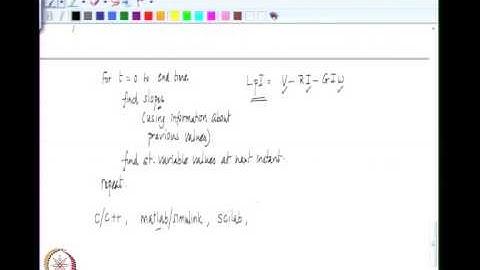 For t = 0 to end time
LpI = V - RI - GIW
find slopes
(using information about
previous values)
find st. variable values at next instant.
repeat
C/C++, matlab/simulink, scilab,